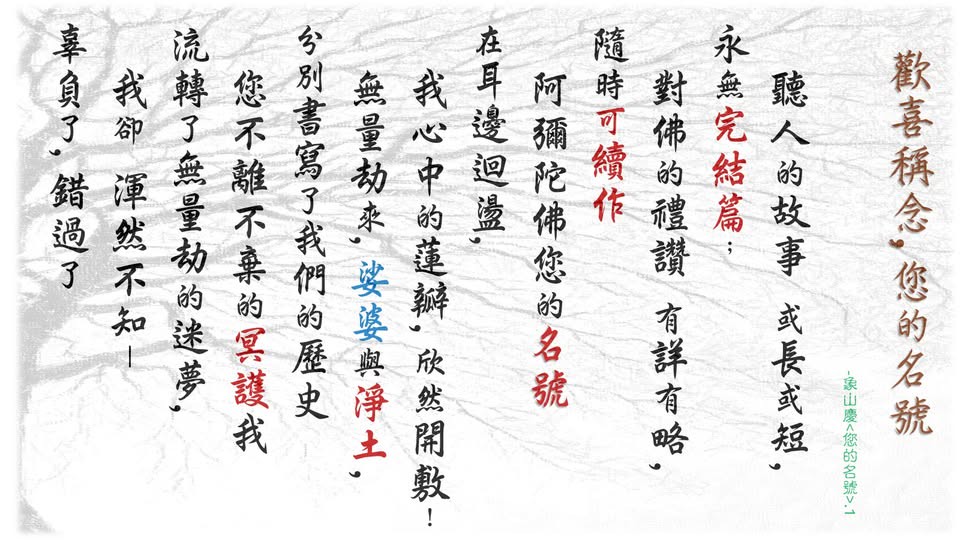 歡喜稱念，您的名號
-象山慶<您的名號>.1
聽人的故事 或長或短，
永無完結篇；
對佛的禮讚 有詳有略，
隨時可續作
阿彌陀佛您的名號
在耳邊迴盪，
我心中的蓮瓣，欣然開敷！
無量劫來，娑婆與淨土，
分別書寫了我們的歷史
您不離不棄的冥護我
流轉了無量劫的迷夢，
我卻 渾然不知—
辜負了，錯過了